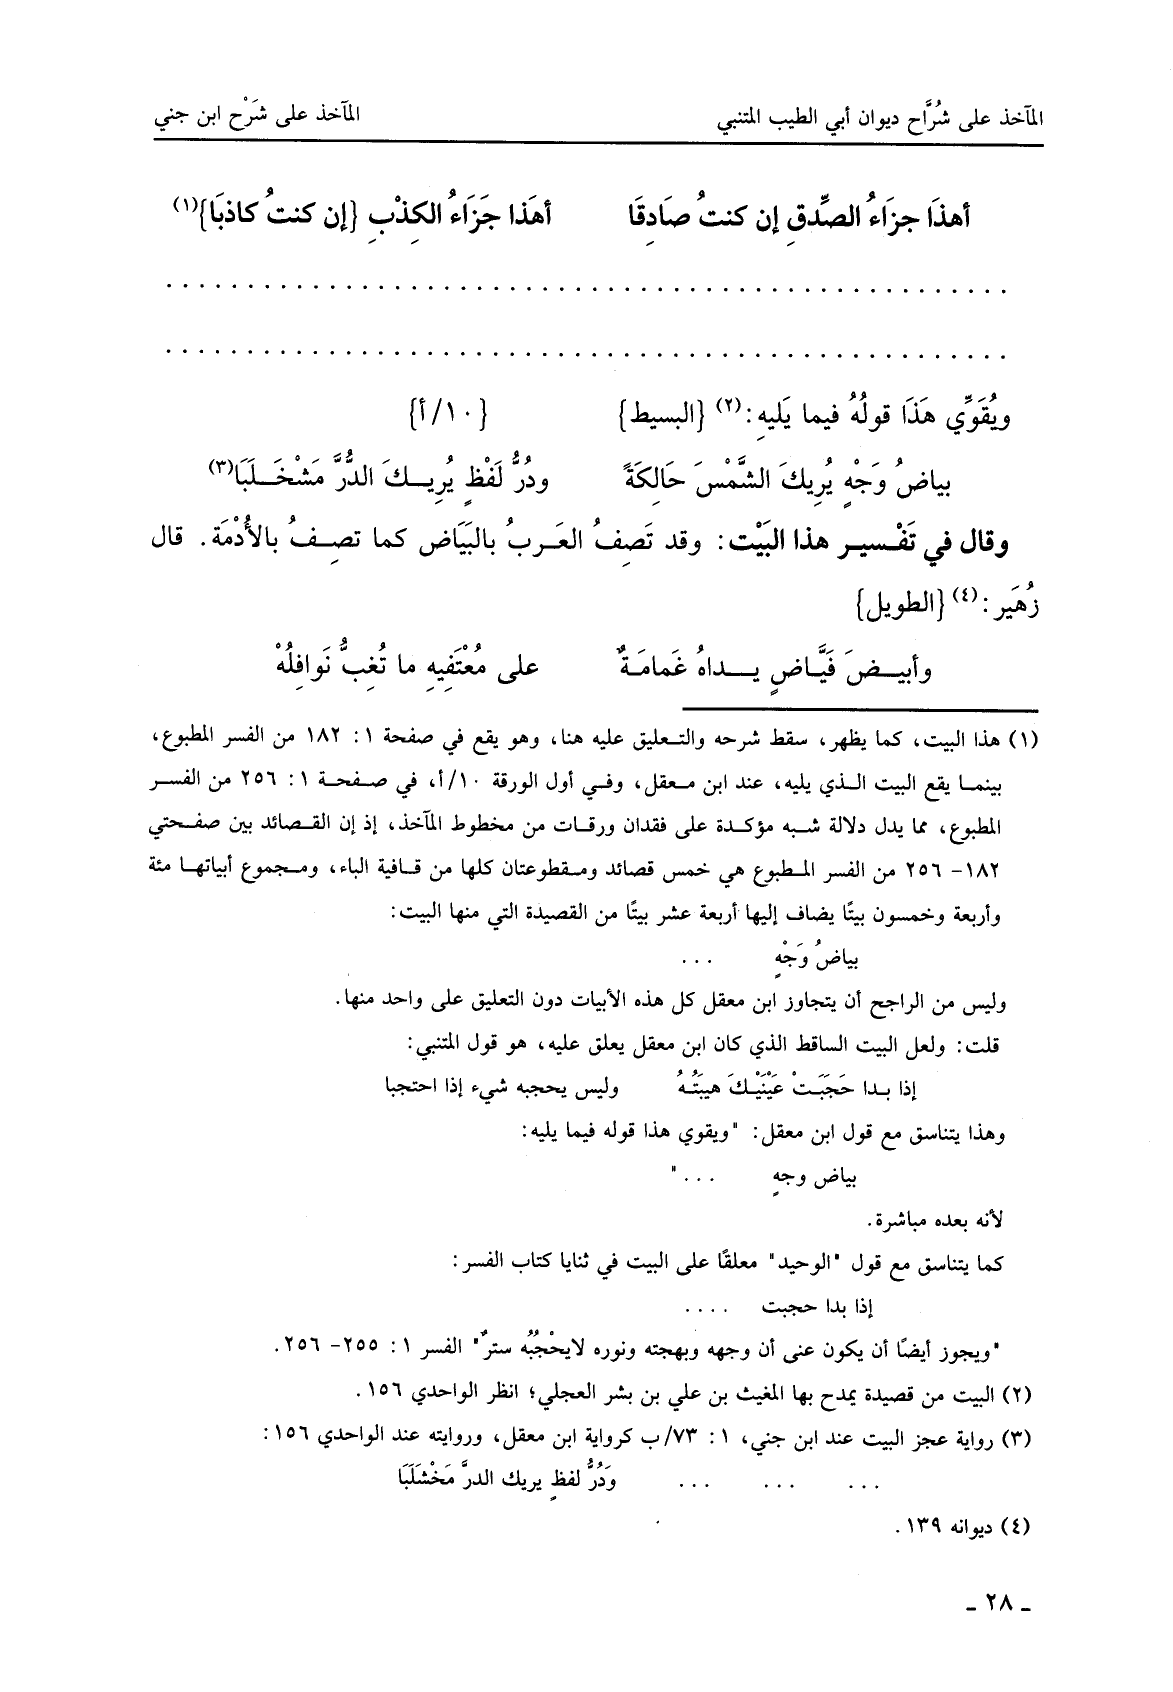 المآخذ على شُرَّاح ديوان أبي الطيب المتنبي المآخذ على شَرْح ابن جني
أهذَا جزَاءُ الصِّدقِ إن كنتُ صَادِقَا أهَذا جَزَاءُ الكِذْبِ {إن كنتُ كاذبَا}(١)
. . . . . . . . . . . . . . . . . . . . . . . . . . . . . . . . . . . . . . . . . . . . . . . . . .
. . . . . . . . . . . . . . . . . . . . . . . . . . . . . . . . . . . . . . . . . . . . . . . . . .
ويُقَوِّي هَذَا قولُهُ فيما يَليهِ:(٢) {البسيط} {١٠/أ}
بياضُ وَجْهٍ يُرِيكَ الشَّمْسَ حَالِكَةً ودُرُّ لَفْظٍ يُرِيـكَ الدُّرَّ مَشْخَـلَبَا(٣)
وقال في تَفْـسيـر هذا البَيْت: وقد تَصِفُ العَـربُ بالبَيَاض كما تصِـفُ بالأُدْمَة. قال
زُهَير:(٤) {الطويل}
وأبيـضَ فَيَّاضٍ يـداهُ غَمامَـةٌ على مُعْتَفِيهِ ما تُغِبُّ نَوافِلُهْ
(١) هذا البيت، كما يظهر، سقط شرحه والتـعليق عليه هنا، وهو يقع في صفحة ١: ١٨٢ من الفسر المطبوع،
بينمـا يقع البيت الـذي يليه، عند ابن مـعقل، وفـي أول الورقة ١٠/أ، في صـفـحة ١: ٢٥٦ من الفسر
المطبوع، مما يدل دلالة شـبه مؤكـدة على فقدان ورقـات من مخطوط المآخذ، إذ إن القـصائد بين صفـحتي
١٨٢- ٢٥٦ من الفسر المـطبوع هي خمس قصائد ومـقطوعتان كلها من قـافية الباء، ومـجموع أبياتهـا مئة
وأربعة وخمسون بيتًا يضاف إليها أربعة عشر بيتًا من القصيدة التي منها البيت:
بياضُ وَجْهٍ ...
وليس من الراجح أن يتجاوز ابن معقل كل هذه الأبيات دون التعليق على واحد منها.
قلت: ولعل البيت الساقط الذي كان ابن معقل يعلق عليه، هو قول المتنبي:
إذا بـدا حَجَبَـتْ عَيْنَيْـكَ هيبَتُـهُ وليس يحجبه شيء إذا احتجبا
وهذا يتناسق مع قول ابن معقل: "ويقوي هذا قوله فيما يليه:
بياض وجهٍ ..."
لأنه بعده مباشرة.
كما يتناسق مع قول "الوحيد" معلقًا على البيت في ثنايا كتاب الفسر:
إذا بدا حجبت ....
"ويجوز أيضًا أن يكون عنى أن وجهه وبهجته ونوره لايحْجُبُه سترٌ" الفسر ١: ٢٥٥- ٢٥٦.
(٢) البيت من قصيدة يمدح بها المغيث بن علي بن بشر العجلي؛ انظر الواحدي ١٥٦.
(٣) رواية عجز البيت عند ابن جني، ١: ٧٣/ب كرواية ابن معقل، وروايته عند الواحدي ١٥٦:
... ... ... وَدُرُّ لفظٍ يريك الدرَّ مَخْشَلَبَا
(٤) ديوانه ١٣٩.
ـ ٢٨ ـ